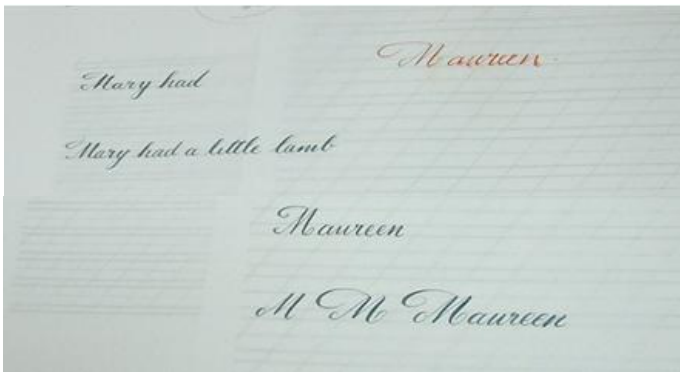 Maureen
Mary had
Mary had a little lamb
Maureen
M M Maureen